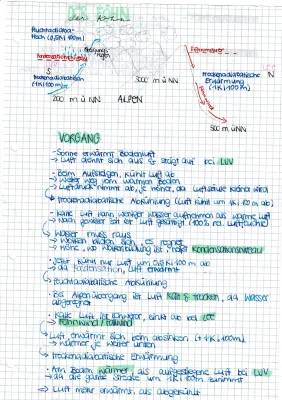 DER FÖHN
Feuchtadiabat.
Hoch (0,5K/100m)
Kondensationsniveau
Steigungsregen
Fallwind
N
S
Trockenadiabatisch
(-1K/100m)
3000 m ü NN
Trockenadiabatische
Erwärmung
(+1K/100m)
200 m ü NN
ALPEN
500 m ü NN
VORGANG
- Sonne erwärmt Bodenluft
→ Luft dehnt sich aus & steigt auf bei LUV
- Beim Aufsteigen, kühlt Luft ab
→ weiter weg vom warmen Boden
→ Luftdruck nimmt ab, je höher, da Luftsäule kleiner wird
→ trockenadiabatische Abkühlung (Luft kühlt um 1K/100m ab)
- Kalte Luft kann weniger Wasser aufnehmen als warme Luft
→ Nach gewisser Zeit ist Luft gesättigt (100% rel. Luftfeuchte)
→ Wasser muss raus
→ Wolken bilden sich, es regnet
→ Höhe, wo Wolkenbildung ist heißt Kondensationsniveau
- Jetzt kühlt nur Luft um 0,5K/100m ab
→ da Kondensation, Luft erwärmt
→ Feuchtadiabatische Abkühlung
- Bei Alpenübergang ist Luft kalt & trocken, da Wasser
abgeregnet
- Kalte Luft ist schwerer, sinkt ab bei LEE
→ Föhnwind / Fallwind
- Luft erwärmt sich beim absinken (+1K/100m)
→ wärmer je weiter unten
→ trockenadiabatische Erwärmung
- Am Boden wärmer als aufgestiegene Luft bei LUV
→ da die ganze Strecke um 1K/100m zunimmt
→ Luft mehr erwärmt, als abgekühlt